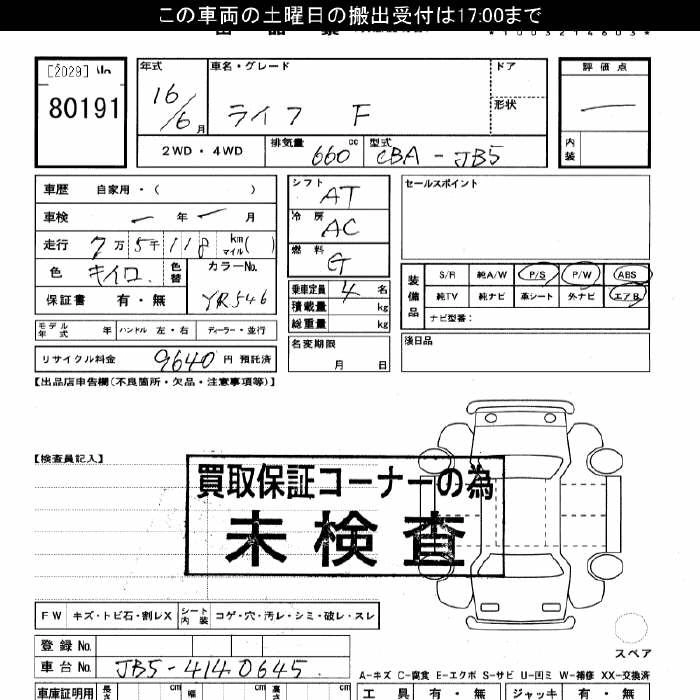 この車両の土曜日の搬出受付は17:00まで
*1003214603*
[2029]
80191
年式 車名・グレード ドア 評価点
16/6月 ライフ F 形状 —
2WD・4WD 排気量 660cc 型式 CBA-JB5 内装
車歴 自家用・( )
車検 — 年 — 月
走行 7万5千118 km マイル( )
色 キイロ 色替 カラーNo.
保証書 有・無 YR546
シフト AT
冷房 AC
燃料 G
乗車定員 4 名
積載量 kg
総重量 kg
セールスポイント
装備品 S/R 純A/W P/S P/W ABS
純TV 純ナビ 革シート 外ナビ エアB
ナビ型番:
モデル年式 年 ハンドル 左・右 ディーラー・並行
名変期限 月 日
瑕疵品
リサイクル料金 9640 円 預託済
【出品店申告欄(不良箇所・欠品・注意事項等)】
【検査員記入】
買取保証コーナーの為
未検査
FW キズ・トビ石・割レX シート内装 コゲ・穴・汚レ・シミ・破レ・スレ
スペア
登録No.
車台No. JB5-4140645
A-キズ C-腐食 E-エクボ S-サビ U-凹ミ W-補修 XX-交換済
車庫証明用 長さ cm 幅 cm 高さ cm 工具 有・無 ジャッキ 有・無